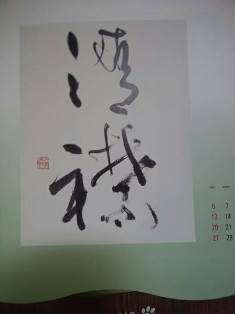 清襟
6 7
13 14
20 21
27 28